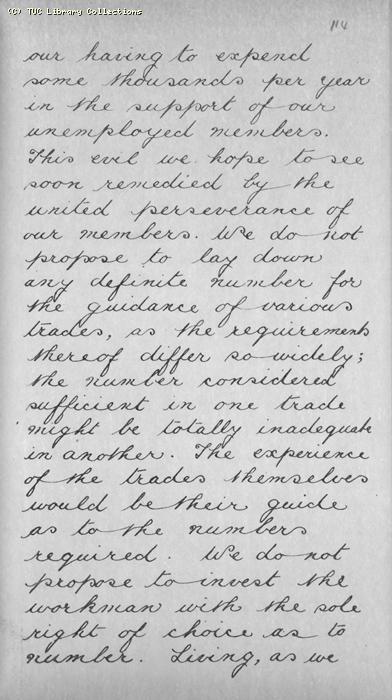 (C) TUC Library Collections
114
our having to expend
some thousands per year
in the support of our
unemployed members.
This evil we hope to see
soon remedied by the
united perseverance of
our members. We do not
propose to lay down
any definite number for
the guidance of various
trades, as the requirements
thereof differ so widely;
the number considered
sufficient in one trade
might be totally inadequate
in another. The experience
of the trades themselves
would be their guide
as to the numbers
required. We do not
propose to invest the
workman with the sole
right of choice as to
number. Living, as we